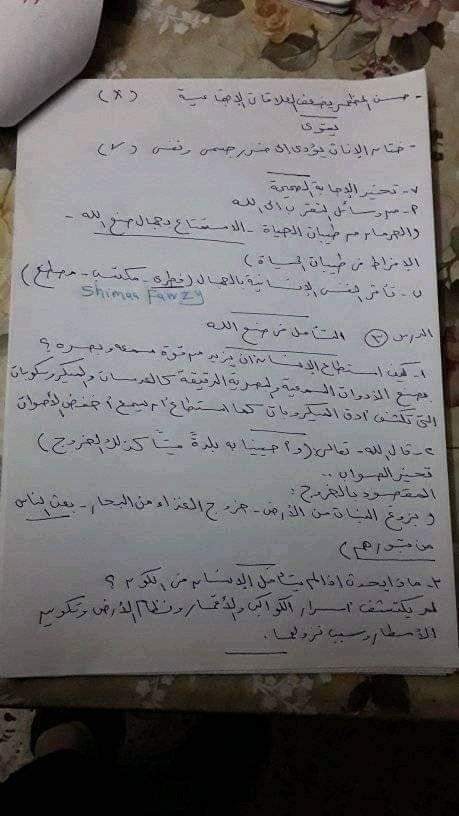 - حسن المظهر يضعف العلاقات الاجتماعية (×)
يقوى
- ختان الإناث يؤدى الى ضرر جسمى ونفسى (✓)
٧- تخير الإجابة الصحيحة
٢- من وسائل التقرب الى الله
(الحرمان من طيبات الحياة - الاستمتاع بجمال صنع الله -
الإفراط فى طيبات الحياة)
ن- تأثر النفس الإنسانية بالجمال (فطرى - مكتسب - مصطنع)
Shimaa Fawzy
الدرس (٣) التأمل فى صنع الله
١- كيف استطاع الإنسان ان يزيد من قوة سمعه وبصره؟
صنع الأدوات السمعية والبصرية الدقيقة كالعدسات والميكروسكوبات
التى تكشف أدق الميكروبات كما استطاع أن يسمع أخفض الأصوات
٢- قال الله - تعالى (وأحيينا به بلدة ميتاً كذلك الخروج)
تخير الصواب ..
المقصود بالخروج:
(خروج النبات من الأرض - خروج الغذاء من البحار - بعث الناس
من قبورهم)
٣- ماذا يحدث اذا لم يتأمل الإنسان فى الكون؟
لم يكتشف أسرار الكواكب والأقمار ونظام الأرض وتكوين
الأمطار وسبب نزولها.